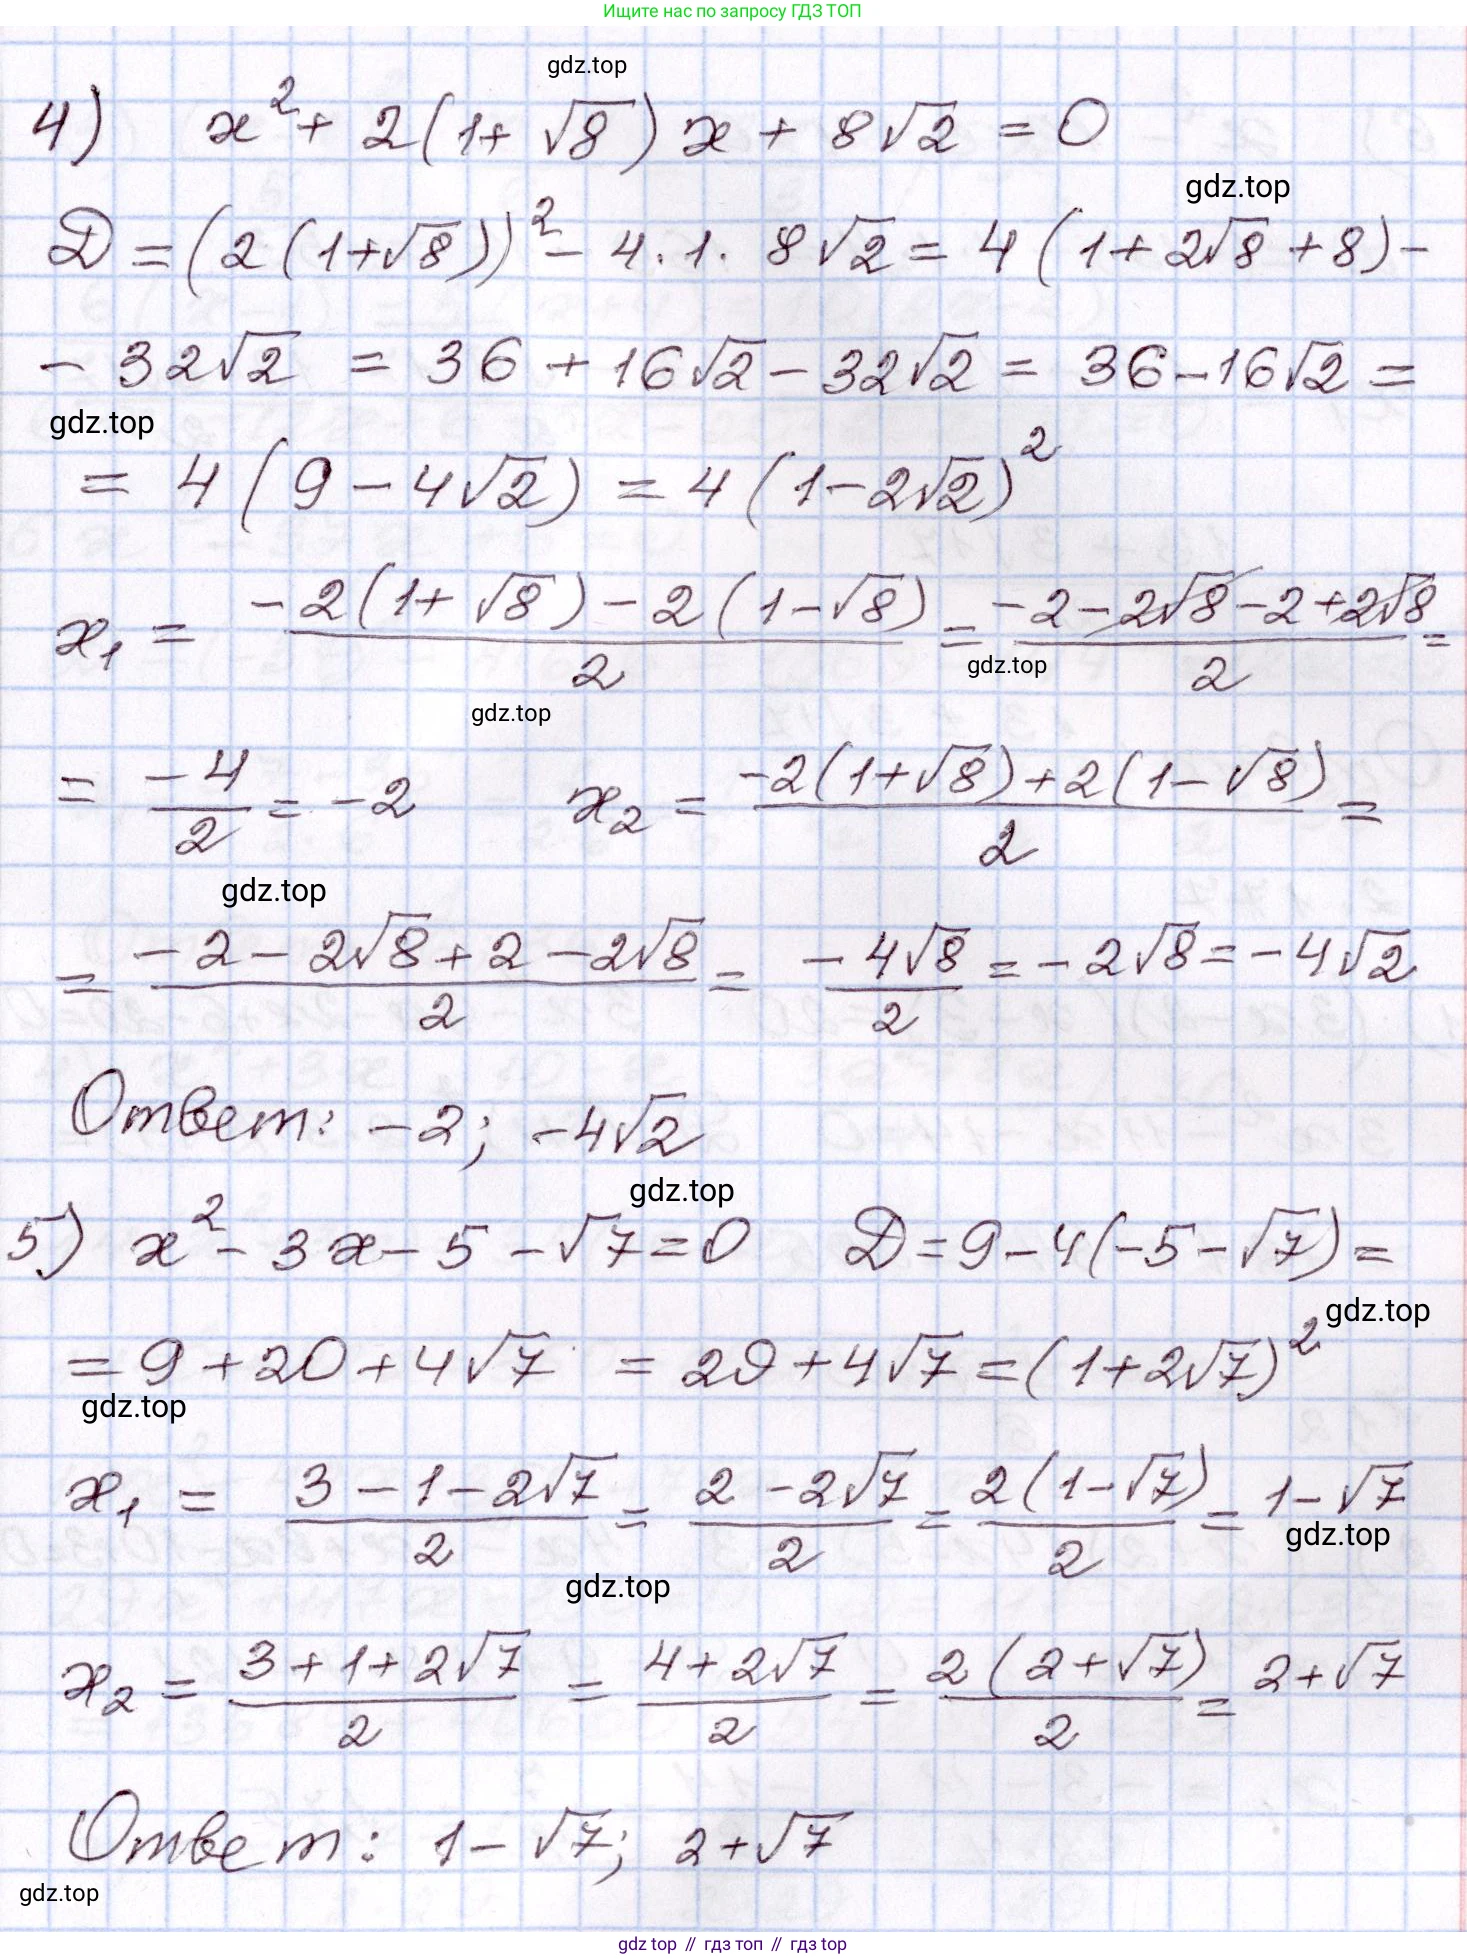 Ищите нас по запросу ГДЗ ТОП
gdz.top
4) x² + 2(1+√8)x + 8√2 = 0
gdz.top
Д = (2(1+√8))² - 4·1·8√2 = 4(1+2√8+8) -
- 32√2 = 36 + 16√2 - 32√2 = 36 - 16√2 =
gdz.top
= 4(9 - 4√2) = 4(1-2√2)²
x₁ = (-2(1+√8) - 2(1-√8))/2 = (-2-2√8-2+2√8)/2 =
gdz.top
gdz.top
= -4/2 = -2 x₂ = (-2(1+√8)+2(1-√8))/2 =
gdz.top
= (-2-2√8+2-2√8)/2 = -4√8/2 = -2√8 = -4√2
Ответ: -2; -4√2
gdz.top
5) x² - 3x - 5 - √7 = 0 Д = 9 - 4(-5-√7) =
gdz.top
= 9 + 20 + 4√7 = 29 + 4√7 = (1+2√7)²
gdz.top
x₁ = (3-1-2√7)/2 = (2-2√7)/2 = 2(1-√7)/2 = 1-√7
gdz.top
gdz.top
x₂ = (3+1+2√7)/2 = (4+2√7)/2 = 2(2+√7)/2 = 2+√7
Ответ: 1-√7; 2+√7
gdz.top
gdz top // гдз топ // gdz top